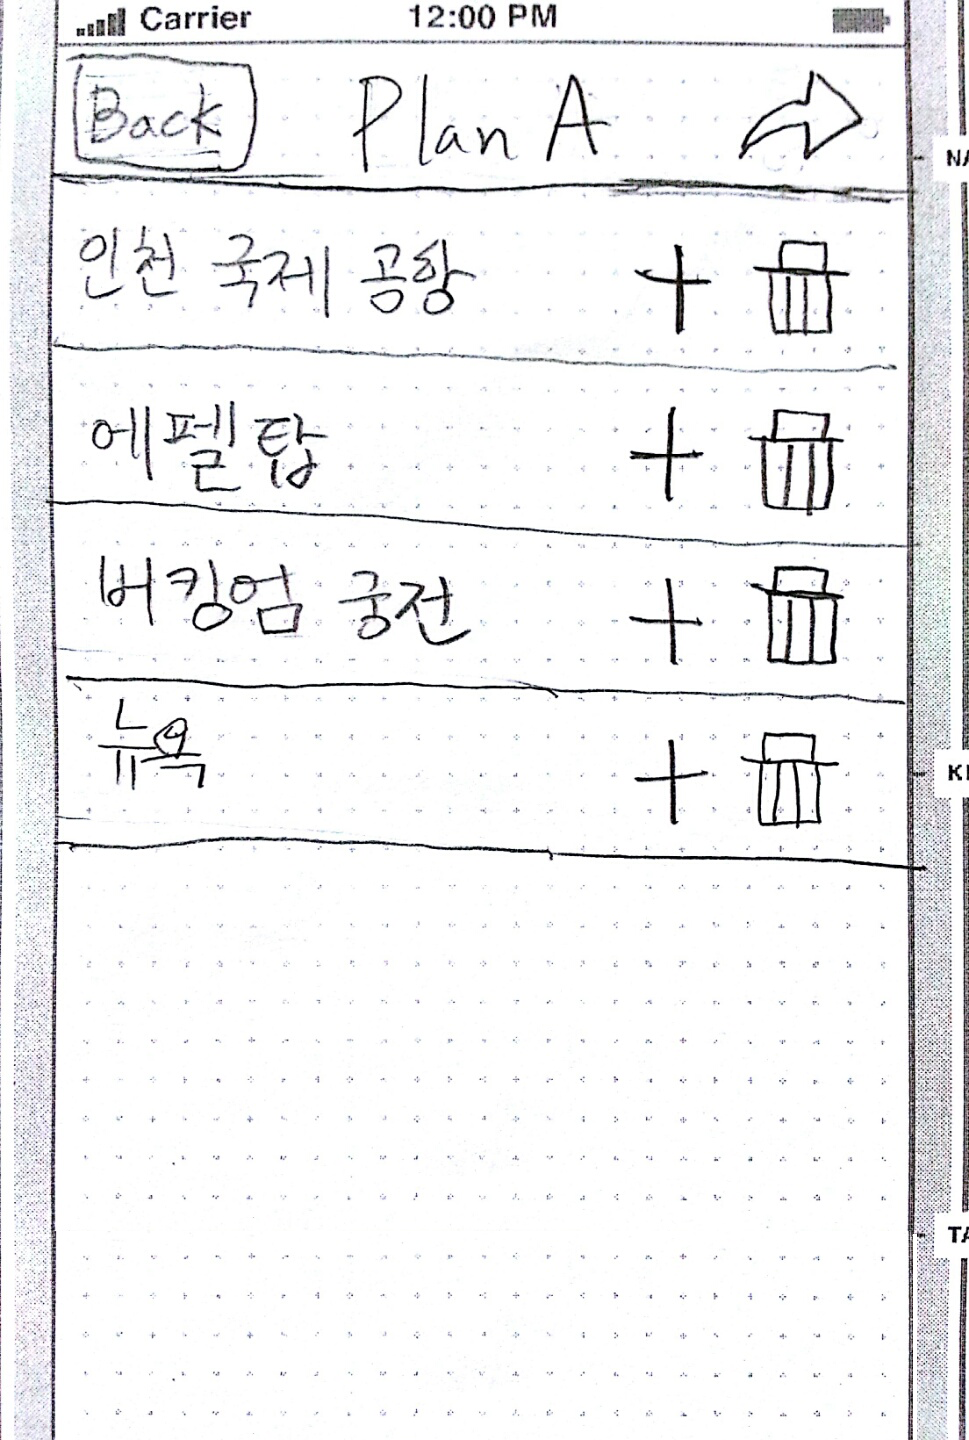 Carrier 12:00 PM
Back Plan A
인천 국제 공항
에펠탑
버킹엄 궁전
뉴욕